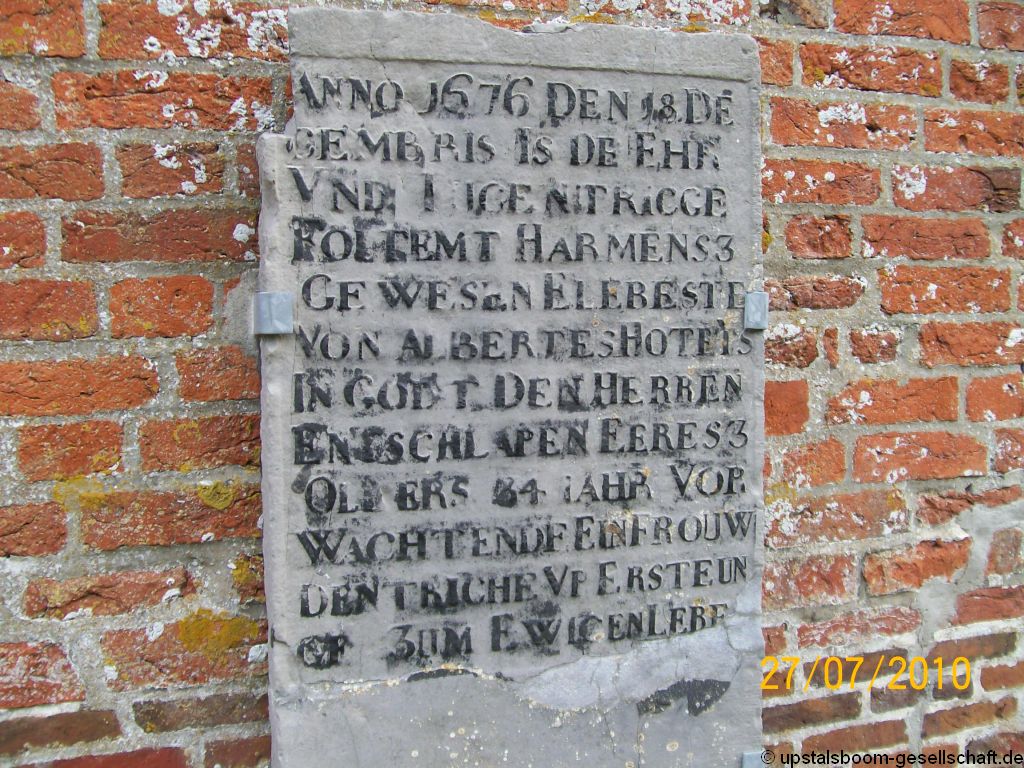 ANNO 1676 DEN 18 DE
CEMBRIS IS DE EHR
VND NITRICGE
FOLTEMT HARMENS3
GEWESEN ELEBESTE
VON ALBERTES HOTEIS
IN GODT DEN HERREN
ENTSCHLAPEN EERES3
OLDERS 34 IAHR VOR
WACHTENDE EIN FROUW
DENTRICHE VP ERSTEUN
GE 3UM EWIGEN LEBE
27/07/2010
© upstalsboom-gesellschaft.de